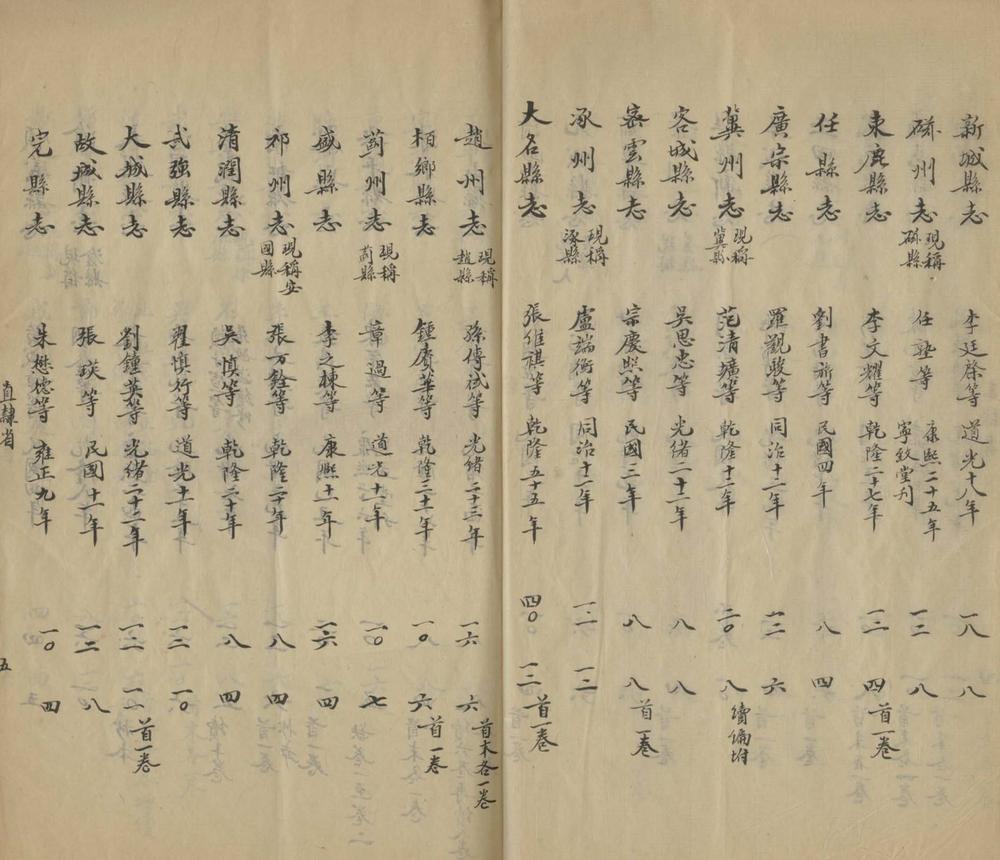 新城縣志 李廷棨等 道光十八年 一八 八
磁州志 現稱磁縣 任塾等 康熙二十五年 寧致堂刊 一二 八
束鹿縣志 李文耀等 乾隆二十七年 一二 四 首一卷
任縣志 劉書旂等 民國四年 八 四
廣宗縣志 羅觀駿等 同治十二年 一二 六
冀州志 現稱冀縣 范清壙等 乾隆十二年 二〇 八 續編坿
容城縣志 吳思忠等 光緒二十二年 八 八
密雲縣志 宗慶煦等 民國三年 八 八 首一卷
涿州志 現稱涿縣 盧端衡等 同治十一年 一二
大名縣志 張維祺等 乾隆五十五年 四〇 一二 首一卷
趙州志 現稱趙縣 孫傳栻等 光緒二十三年 一六 六 首末各一卷
柏鄉縣志 鍾賡華等 乾隆三十一年 一〇 六 首一卷
薊州志 現稱薊縣 章過等 道光十一年 一〇 七
盛縣志 李之棟等 康熙十一年 一六 四
祁州志 現稱安國縣 張万銓等 乾隆二十年 八 四
清潤縣志 吳慎等 乾隆二十年 八 四
武強縣志 翟慎行等 道光十一年 一二 一〇
大城縣志 劉鍾英等 光緒二十三年 一二 首一卷
故城縣志 張鍈等 民國十一年 一二 八
完縣志 朱懋德等 雍正九年 一〇 四
直隸省 五